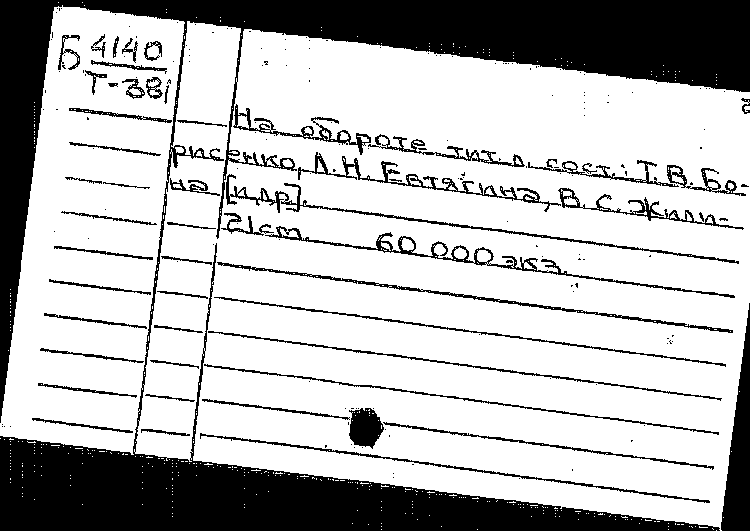 Б 4140
Т-381
На обороте тит. л. сост.: Т. В. Бо-
рисенко, Л. Н. Евтягина, В. С. Жили-
на [и др].
21 cm. 60 000 экз.